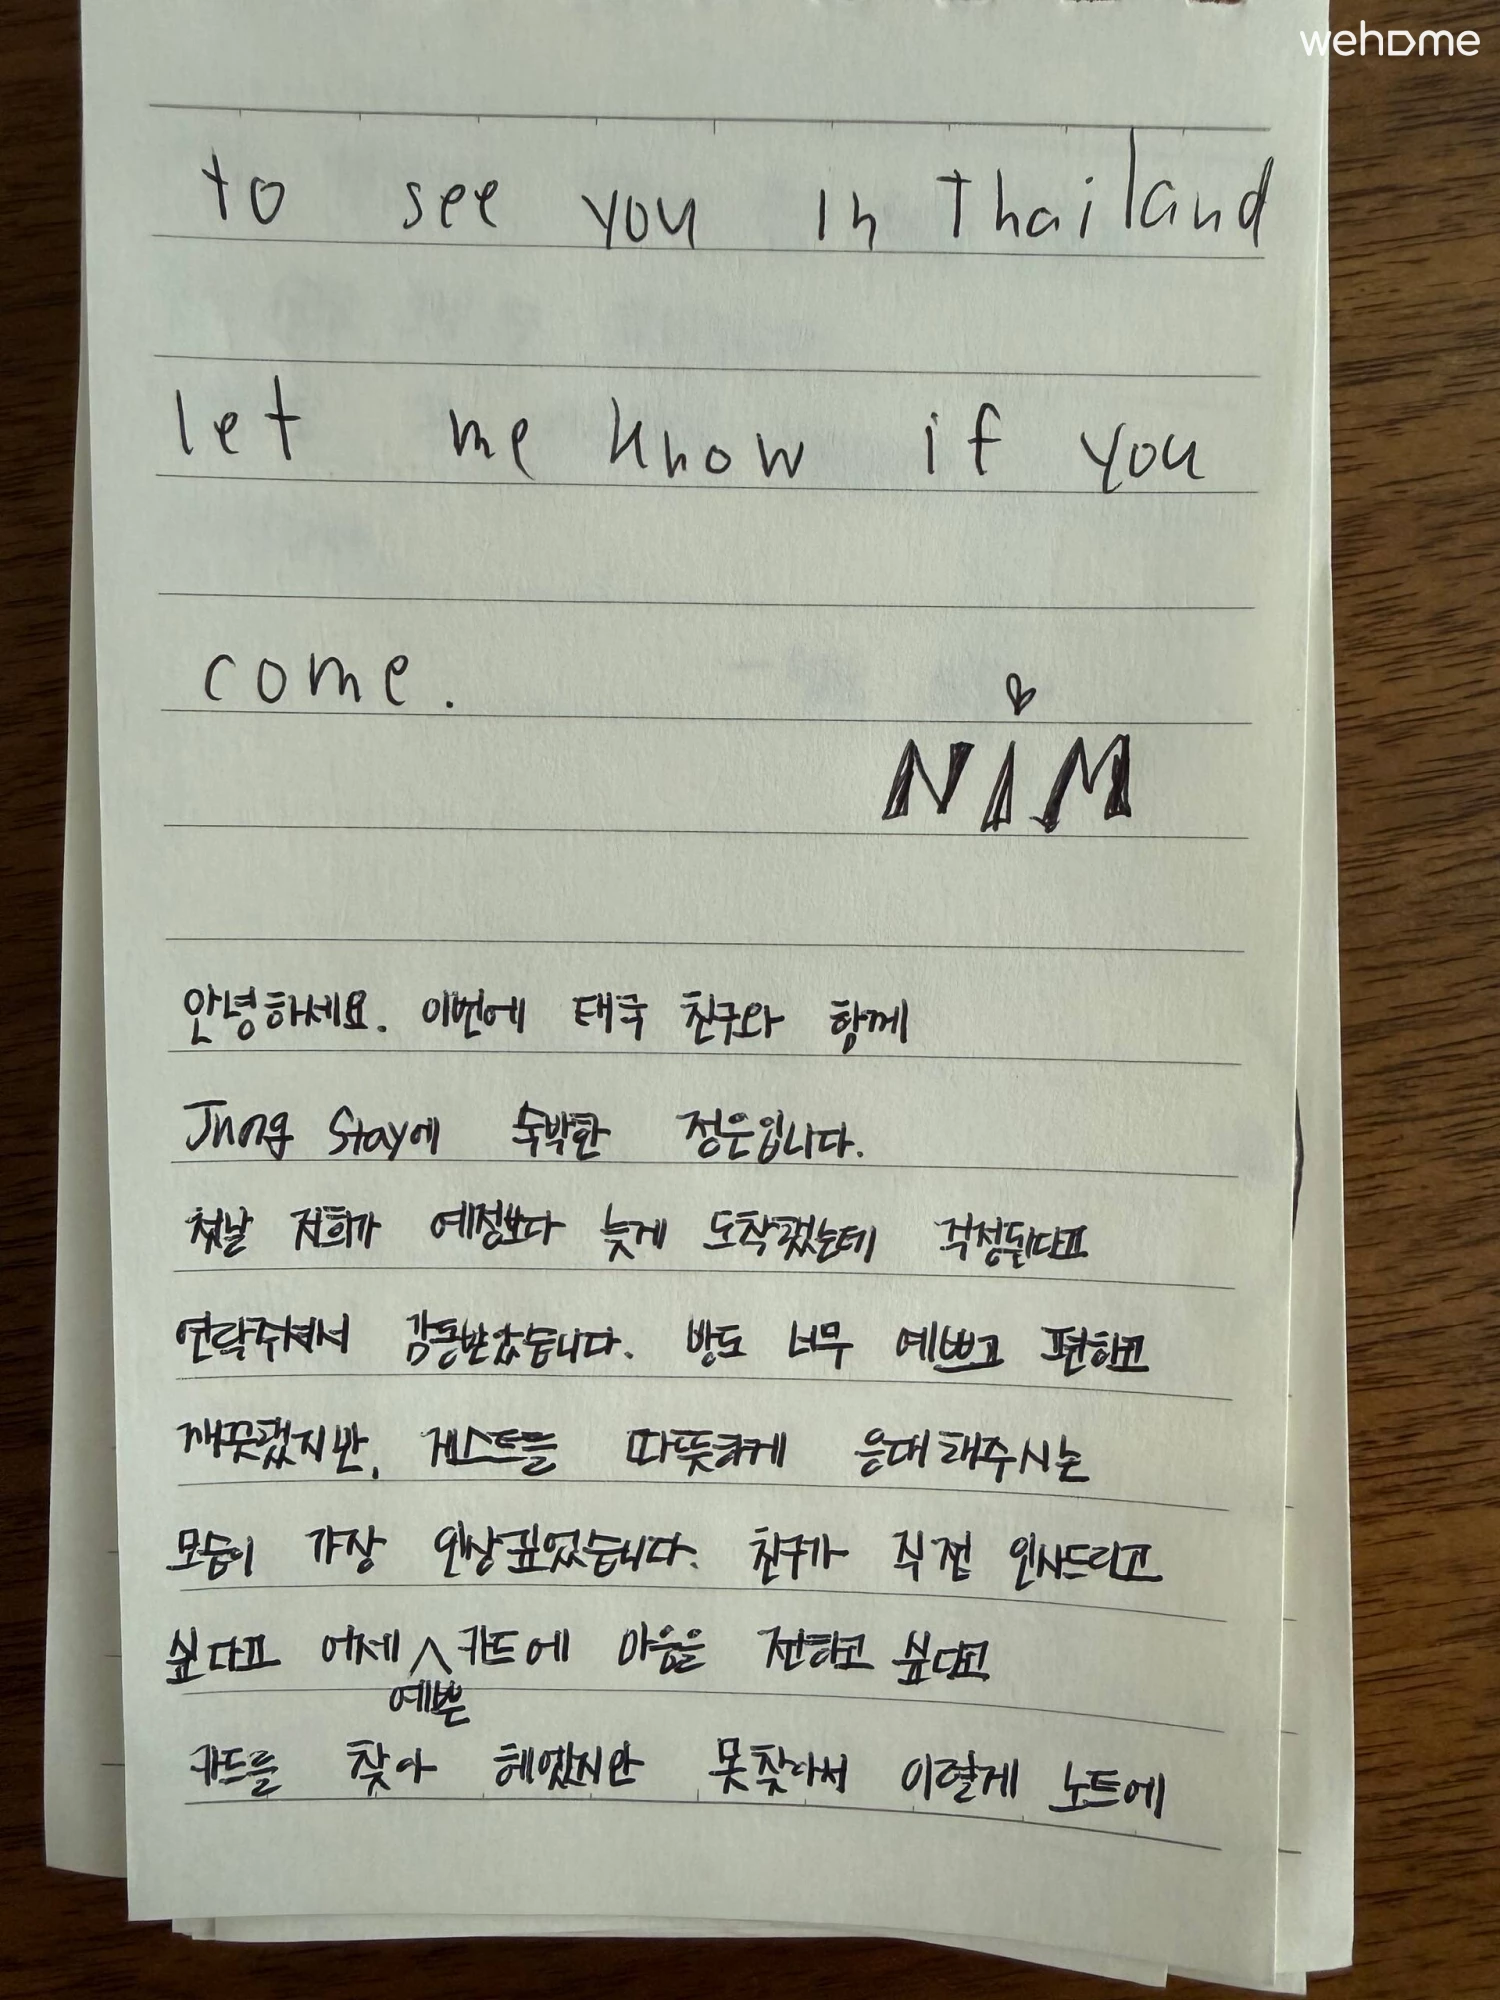 wehome
to see you in Thailand
let me know if you
come.
NIM
안녕하세요. 이번에 태국 친구와 함께
Jung Stay에 숙박한 정은입니다.
첫날 저희가 예정보다 늦게 도착했는데 걱정된다고
연락주셔서 감동받았습니다. 방도 너무 예쁘고 편하고
깨끗했지만, 게스트를 따뜻하게 응대해주시는
모습이 가장 인상깊었습니다. 친구가 직접 인사드리고
싶다고 어제 ∧ 카드에 마음을 전하고 싶다고
예쁜
카드를 찾아 헤맸지만 못찾아서 이렇게 노트에